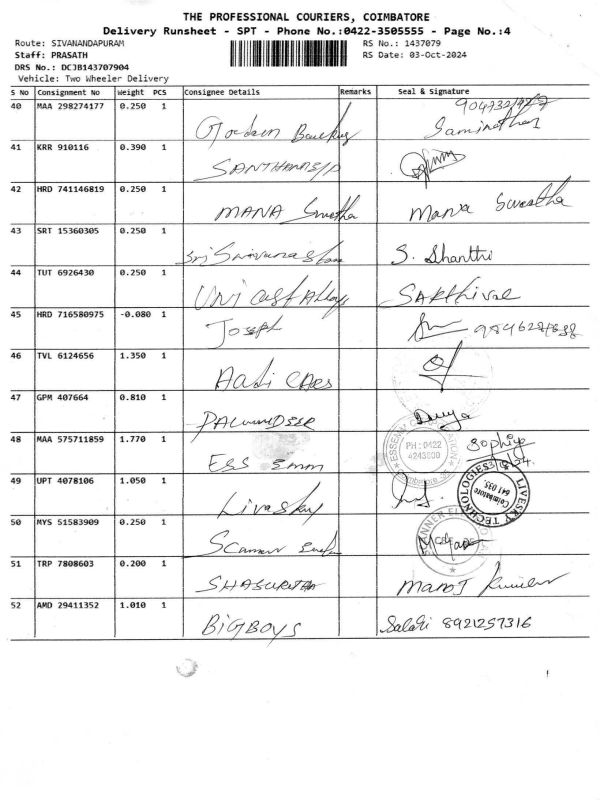 THE PROFESSIONAL COURIERS, COIMBATORE
Delivery Runsheet - SPT - Phone No.:0422-3505555 - Page No.:4
Route: SIVANANDAPURAM RS No.: 1437079
Staff: PRASATH RS Date: 03-Oct-2024
DRS No.: DCJB143707904
Vehicle: Two Wheeler Delivery
S No Consignment No Weight PCS Consignee Details Remarks Seal & Signature
40 MAA 298274177 0.250 1
Saminathan
41 KRR 910116 0.390 1
42 HRD 741146819 0.250 1
MANA Swetha Mana Swetha
43 SRT 15360305 0.250 1
S. Shanthi
44 TUT 6926430 0.250 1
Uni cast Alloys SAKthivel
45 HRD 716580975 -0.080 1
Joseph
46 TVL 6124656 1.350 1
Aadi
47 GPM 407664 0.810 1
Divya
48 MAA 575711859 1.770 1
PH : 0422
4243800
Sophiya
ESS
49 UPT 4078106 1.050 1
LIVESKY TECHNOLOGIES
Coimbatore
641 035.
Livesky
50 MYS 51583909 0.250 1
Scanner
51 TRP 7808603 0.200 1
Manoj Kumar
52 AMD 29411352 1.010 1
BIGBOYS 8921257316